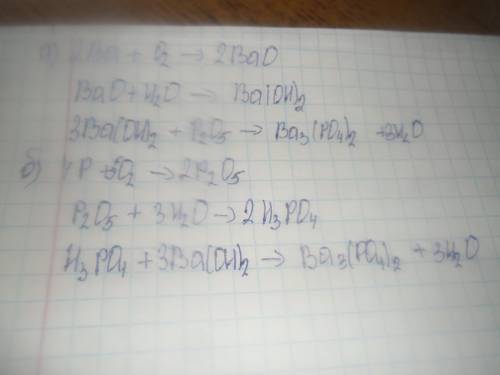 а) 2Ba + O₂ → 2BaO
BaO + H₂O → Ba(OH)₂
3Ba(OH)₂ + P₂O₅ → Ba₃(PO₄)₂ + 3H₂O
б) 4P + 5O₂ → 2P₂O₅
P₂O₅ + 3H₂O → 2H₃PO₄
H₃PO₄ + 3Ba(OH)₂ → Ba₃(PO₄)₂ + 3H₂O